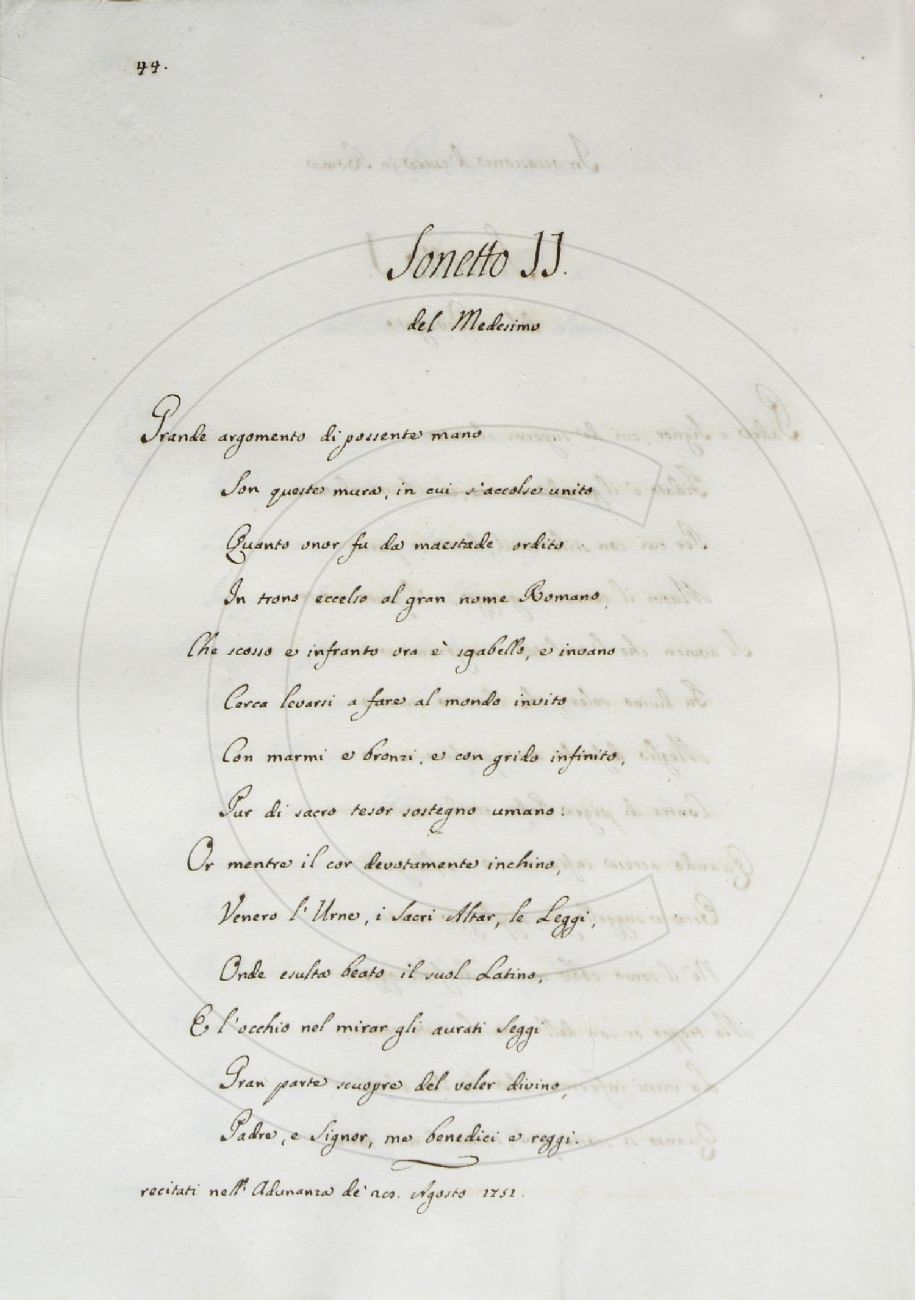 44.
Sonetto II.
del Medesimo
Grande argomento di possente mano
Son queste mura, in cui s'accolse unito
Quanto onor fu da maestade ordito
In trono eccelso al gran nome Romano,
Che scosso e infranto ora è sgabello, e invano
Cerca levarsi a fare al mondo invito
Con marmi e bronzi, e con grido infinito,
Pur di sacro tesor sostegno umano:
Or mentre il cor devotamente inchino,
Venero l'Urne, i Sacri Altar, le Leggi,
Onde esulta beato il suol Latino,
E l'occhio nel mirar gli aurati Seggi
Gran parte scuopre del voler divino,
Padre, e Signor, me benedici e reggi.
recitati nell' Adunanza de' Agosto 1751.